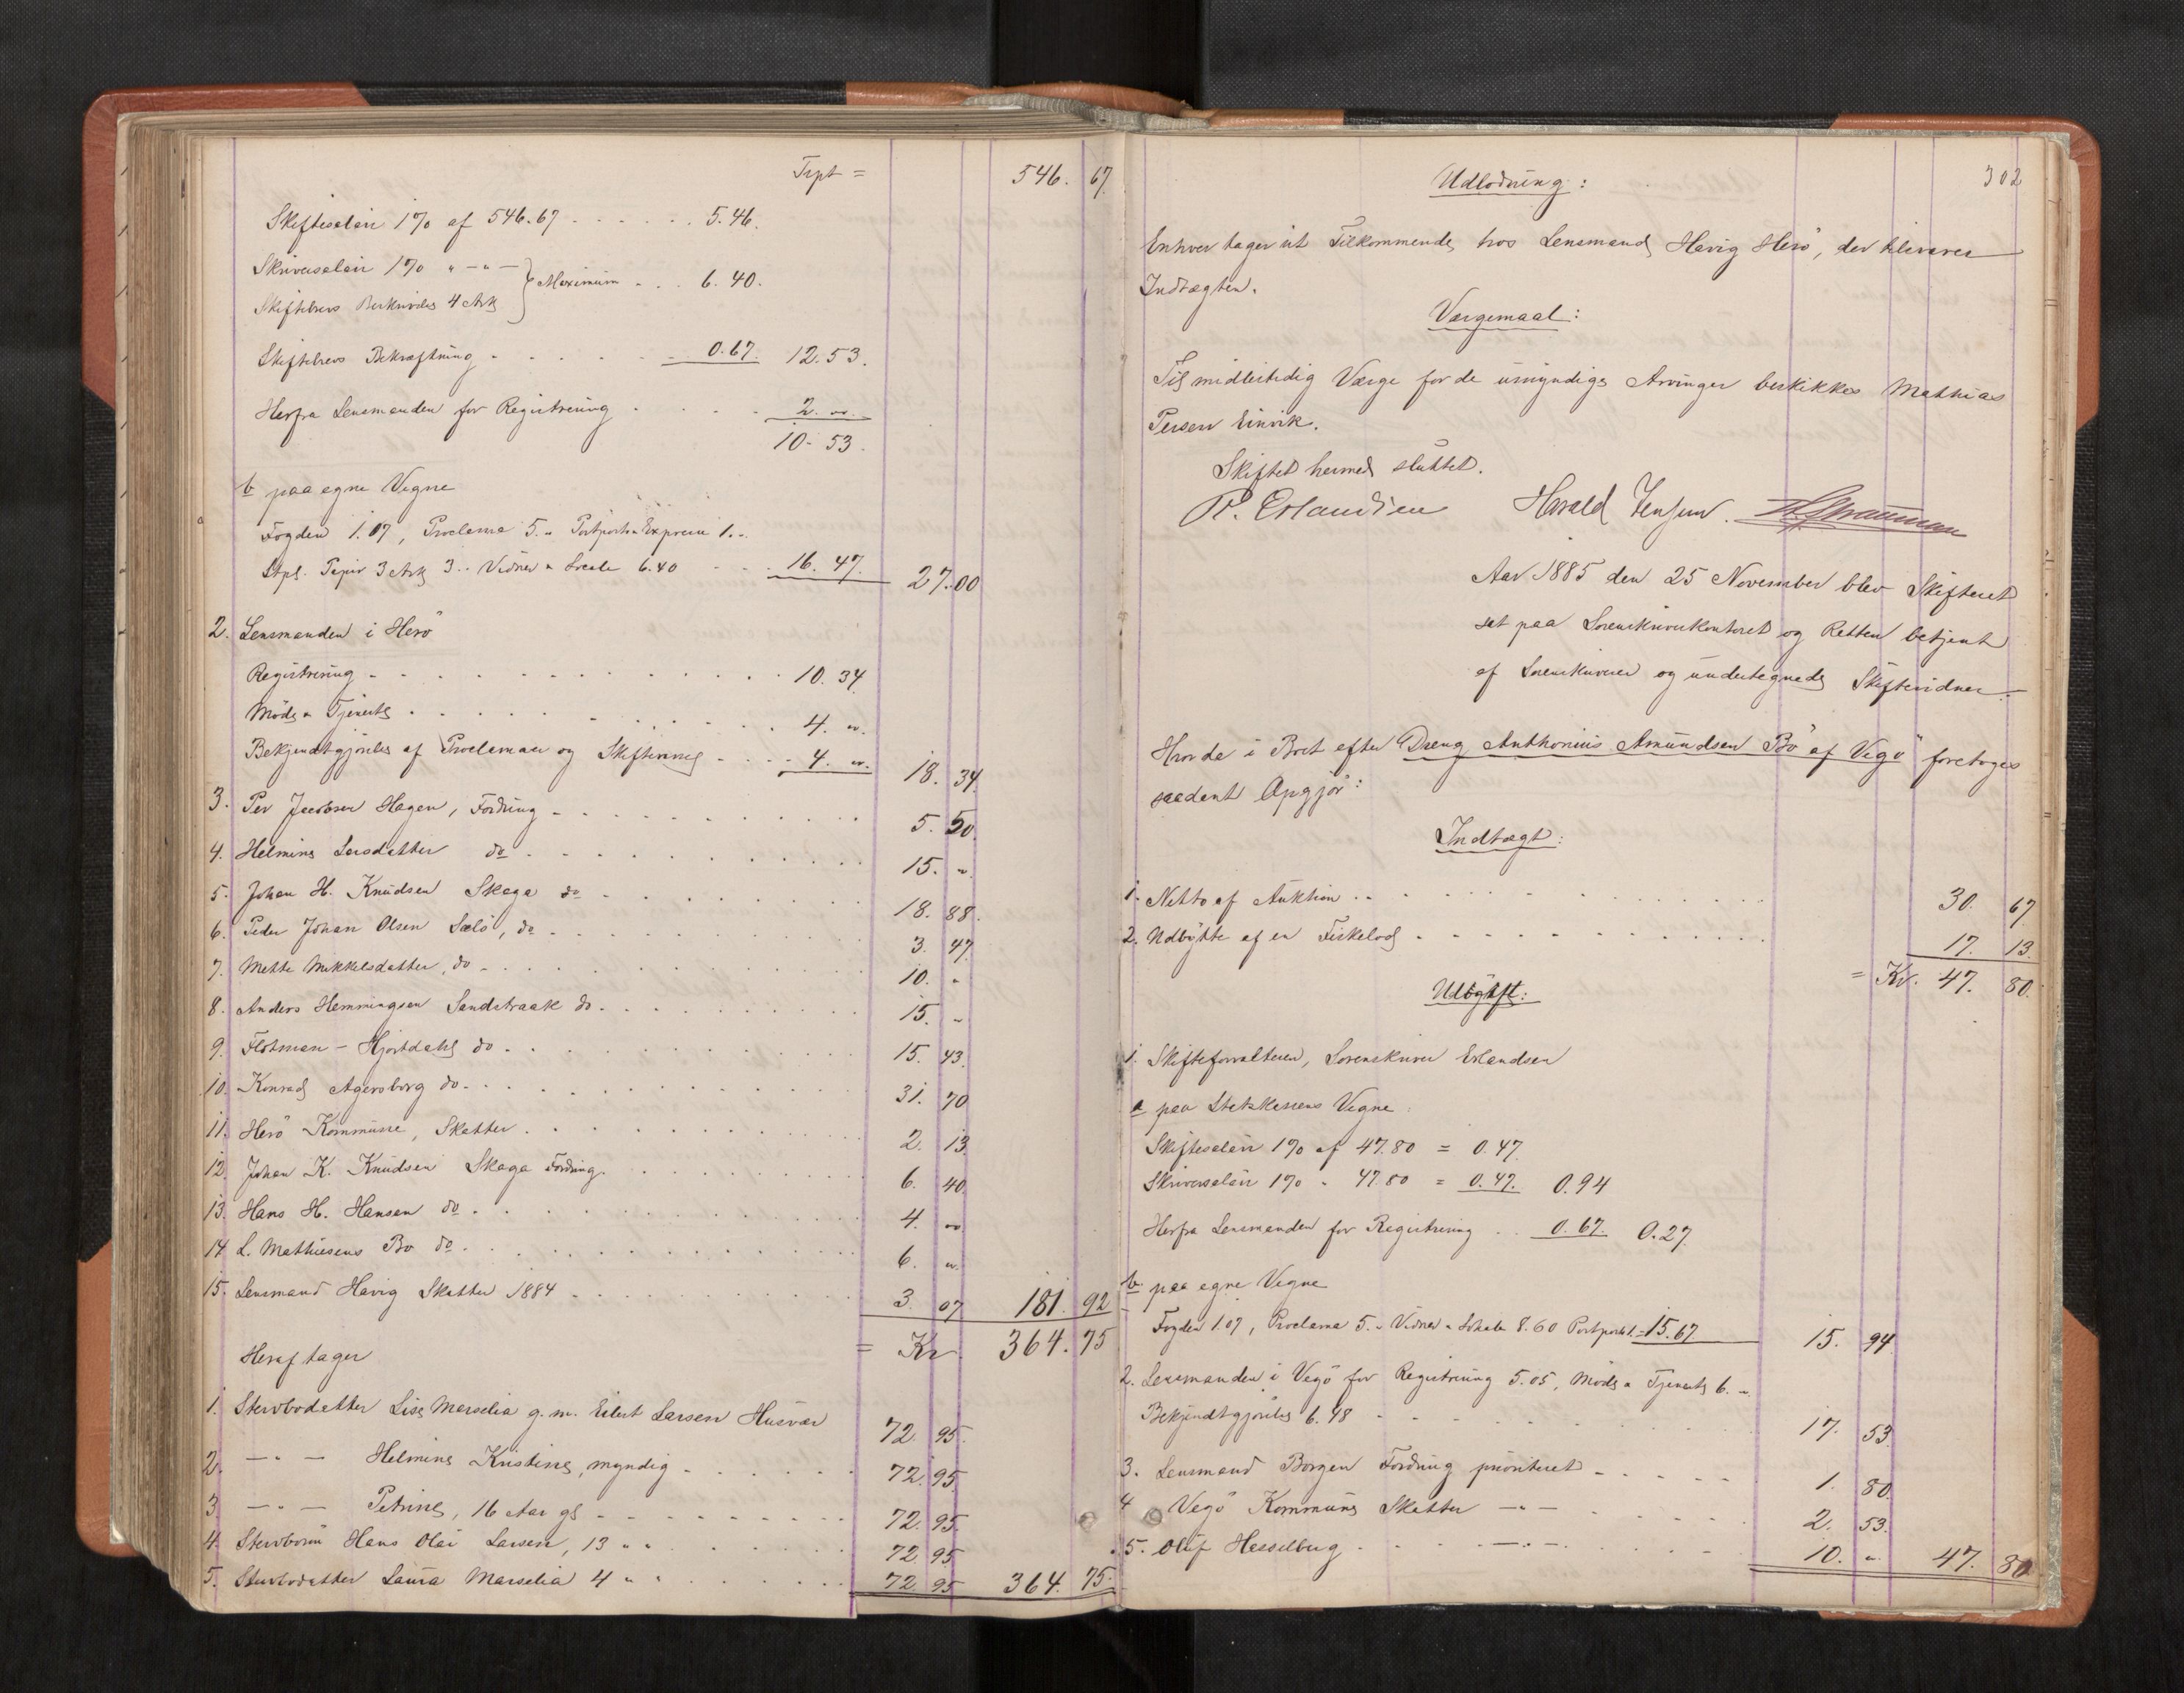 Trpt = 546. 67
Skiftesalær 1% af 546.67 - - - - - - 5.46.
Skriversalær 1% " - " - } Maximum - - . 6. 40.
Skiftebrevs Beskrivelse 4 Ark
Skiftebrevs Bekræftning - - - - - - 0.67. 12.53.
Herfra Lensmanden for Registrering . . . . - 2. "
10. 53.
b paa egne Vegne
Fogden 1.07, Proclama 5. " Postporto Expresse 1. "
Stpl. Papir 3 Ark 3. " Vidner & Locale 6.40 - - . 16. 47. 27.00
2. Lensmanden i Herö
Registrering - - - - - - - - - 10. 34
Möde & Tjeneste . . . . . . . . . 4. "
Bekjendtgjörelse af Proclamaer og - - - - 4. " 18. 34.
3. Per Jacobsen Hagen, Fordring - - - - - - 5. 50.
4. Helmine Larsdatter do - - - - - - 15. "
5. Johan H. Knudsen Skaga do - - - - - - 18. 88.
6. Peder Johan Olsen Sælö, do - - - - - - 3. 47.
7. Mette Mikkelsdatter, do - - - - - - 10. "
8. Anders Hemmingsen Sandstraak do - - - - - - 15. "
9. Flötman - Hjortdahl do - - - - - - 15. 43.
10. Konrad Agersborg do - - - - - - 31. 70
11. Herö Kommune, Skatter . . . . . . 2. 13
12. Johan K. Knudsen Skaga Fordring . . . . . . 6. 40
13. Hans H. Hansen do . . . . . . 4. "
14 L. Mathiesens Bo do . . . . . . 6. "
15. Lensmand Havig Skatter 1884 - - - - - - 3. 07 181. 92
= Kr. 364. 75
Heraf tager
1. Stervbodatter Lise Marselia g. m. Eilert Larsen Husvær 72. 95.
2. - " - Helmine Kristine, myndig - - - - - - 72. 95.
3. - " - Petrine, 16 Aar gl - - - - - - 72. 95.
4. Stervbosön Hans Olai Larsen, 13 " " . . . . . 72. 95
5. Stervbodatter Laura Marselia 4 " " . . . . . 72. 95 364. 75.
302
Udlodning:
Enhver tager sit Tilkommende hos Lensmand Havig Herö, der hæver
Indtægten.
Værgemaal:
Til midlertidig Værge for de umyndige Arvinger beskikkes Mathias
Persen Einvik.
Skiftet hermed sluttet.
R. Erlandsen Harald Jensen.
Aar 1885 den 25 November blev Skifteret
sat paa Sorenskriverkontoret og Retten betjent
af Sorenskriveren og undertegnede Skiftevidner.
Hvorda i Boet efter Dreng Anthonius Amundsen Bö af Vegö foretoges
saadant Opgjör:
Indtægt:
1. Netto af Auktion . . . . . . 30. 67
2. Udbytte af en Fiskelod . . . . . . 17. 13.
= Kr. 47. 80.
Udgift:
1. Skifteforvalteren, Sorenskriver Erlandsen
a paa Statskassens Vegne:
Skiftesalær 1% af 47.80 = 0.47.
Skriversalær 1% " 47.80 = 0.47. 0.94
Herfra Lensmanden for Registrering . . 0.67 0.27.
b. paa egne Vegne
Fogden 1.07, Proclama 5. " Vidner & Lokale 8.60 Postporto 1. " 15.67 15. 94.
2. Lensmanden i Vegö for Registrering 5.05, Möde & Tjeneste 6. "
Bekjendtgjörelse 6.48 - - - - - - 17. 53.
3. Lensmand Borgen Fordring prioriteret - - - - - 1. 80.
4 Vegö Kommune Skatter - " - . . . . . 2. 53.
5. Oluf Hesselberg . . . - " - . . . 10. " 47. 80